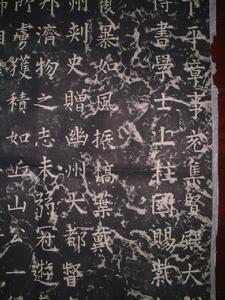 下平章事充集賢殿大
侍書學士上柱國賜紫
後果如風振槁葉戴
州刺史贈幽州大都督
濟物之志未弱冠遊
虜獲積如丘山云一